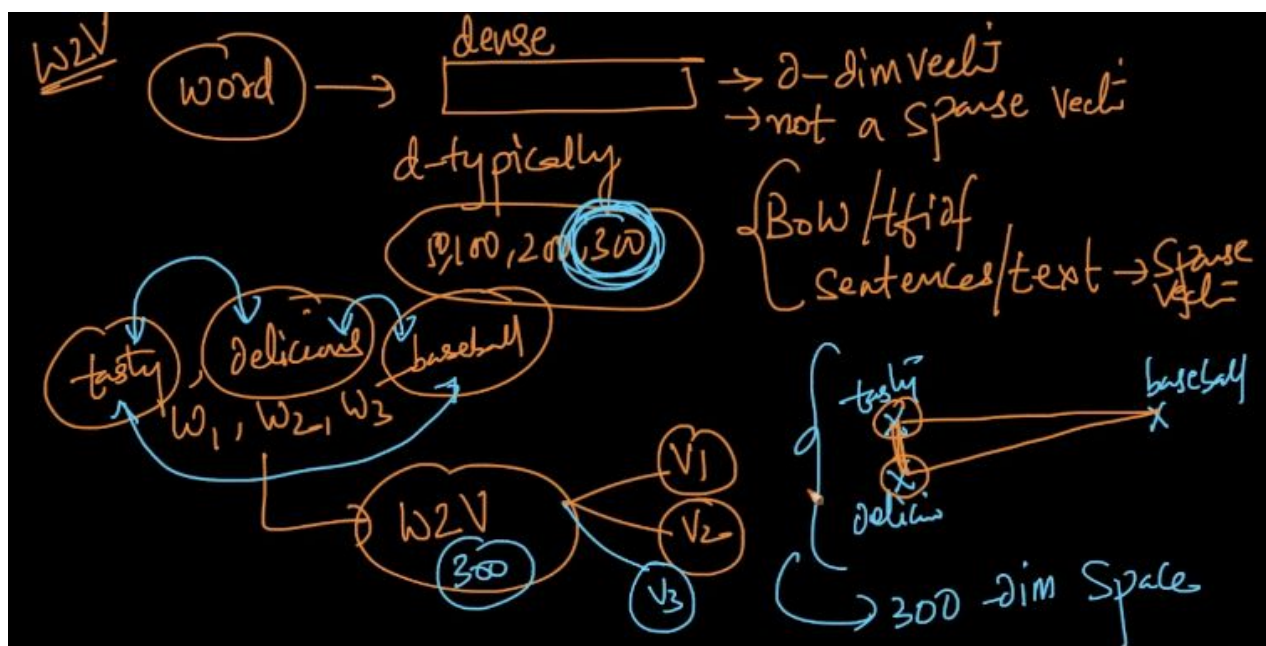 W2V
word → dense → d-dim vect
→ not a sparse vect
d-typically
50,100,200,300
{BoW/tfidf
sentences/text → sparse
vect
tasty, delicious, baseball
w1, w2, w3
W2V
300
V1
V2
V3
tasty
baseball
delicio
→ 300-dim Space